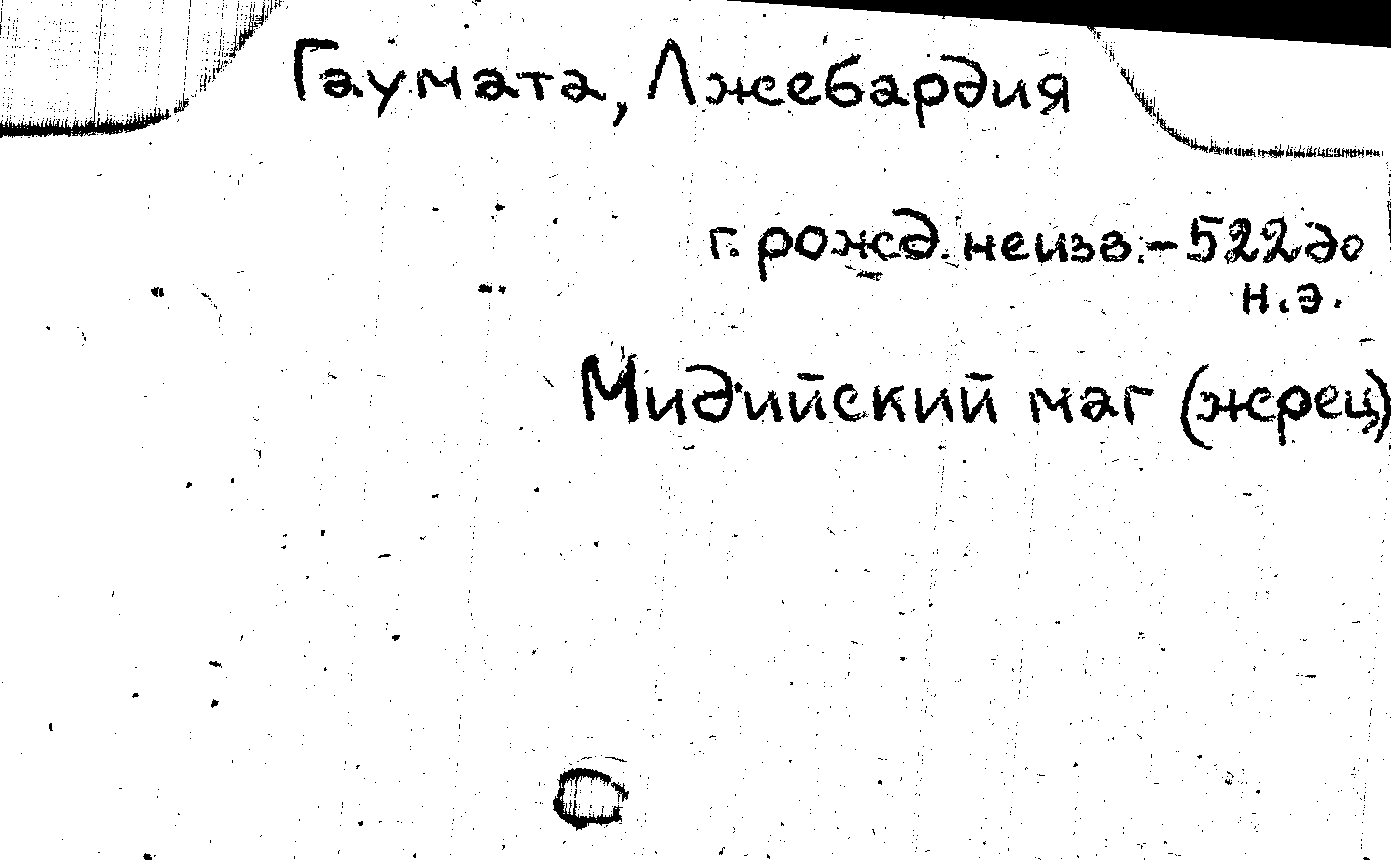 Гаумата, Лжебардия
г. рожд. неизв. – 522 до
н.э.
Мидийский маг (жрец)